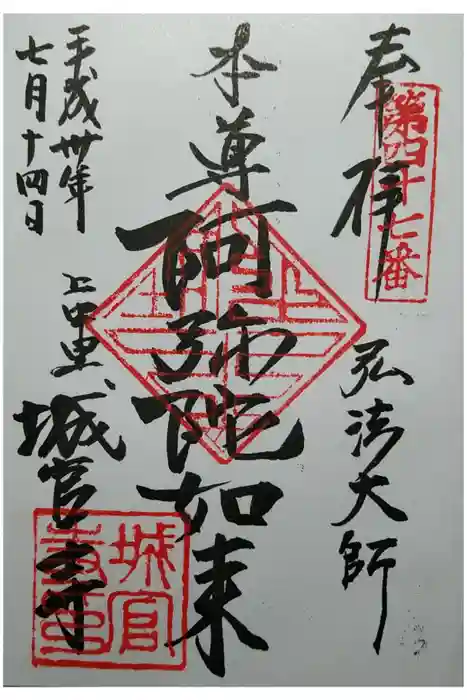 奉拝
第四十七番
弘法大師
本尊
阿弥陀如来
平成卅年
七月十四日
上中里
城官寺
城官寺印